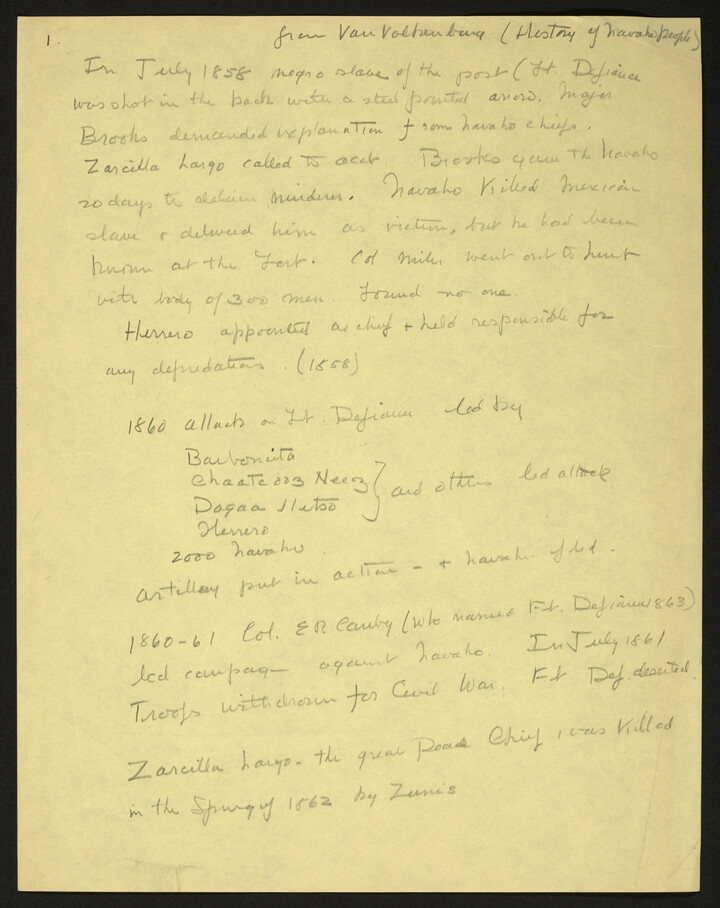 1. from Van Valkenburg (History of Navaho People)
In July 1858 negro slave of the post (Ft. Defiance
was shot in the back with a steel pointed arrow. Major
Brooks demanded explanation from Navaho chiefs.
Zarcilla Largo called to acct. Brooks gave the Navaho
20 days to deliver murderer. Navaho Killed Mexican
slave & delivered him as victim, but he had been
known at the Fort. Col Miles went out to hunt
with body of 300 men. Found no one.
Herrero appointed as chief & held responsible for
any depredations. (1858)
1860 attack on Ft. Defiance led by
Barboncito
Chaatcooz Neez } and others led attack
Dagaa
Herrero
2000 Navaho.
Artillery put in action - & Navaho fled.
1860-61 Col. E R Canby (who named Ft. Defiance 1863)
led campaign against Navaho. In July 1861
Troops withdrawn for Civil War. Ft Def. deserted.
Zarcilla Largo - the great Peace Chief, was Killed
in the Spring of 1862 by Zunis